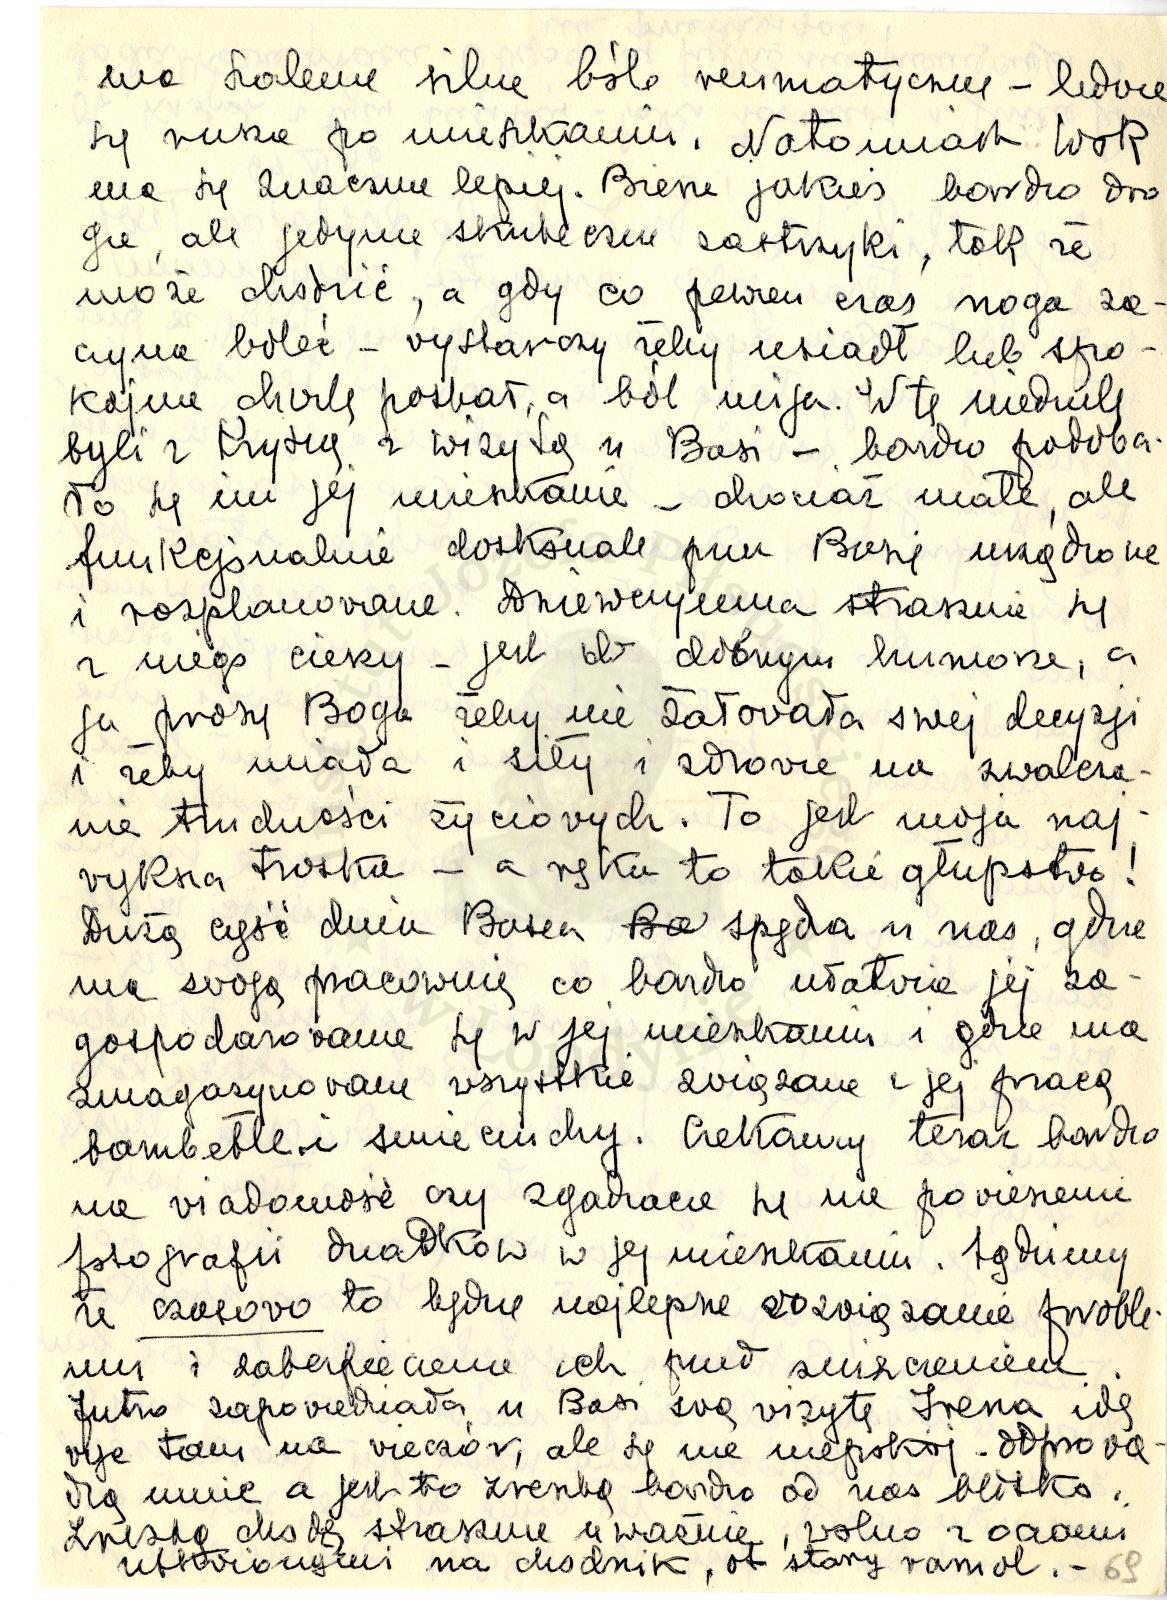 ma szalenie silne bóle reumatyczne – ledwie
się rusza po mieszkaniu. Natomiast Wok
ma się znacznie lepiej. Bierze jakieś bardzo dro
gie, ale jedynie skuteczne zastrzyki, tak że
może chodzić, a gdy co pewien czas noga za-
czyna boleć – wystarczy żeby usiadł lub spo-
kojnie chwilę postał, a ból mija. W tę niedzielę
byli z Krysią z wizytą u Basi – bardzo podoba-
ło się im jej mieszkanie – chociaż małe, ale
funkcjonalnie doskonale przez Basię urządzone
i rozplanowane. Dziewczynina strasznie się
z niego cieszy – jest w dobrym humorze, a
ja proszę Boga żeby nie żałowała swej decyzji
i żeby miała i siły i zdrowie na zwalcza-
nie trudności życiowych. To jest moja naj-
większa troska – a ręka to takie głupstwo!
Dużą część dnia Basia Ba spędza u nas, gdzie
ma swoją pracownię co bardzo ułatwia jej za-
gospodarowanie się w jej mieszkaniu i gdzie ma
zmagazynowane wszystkie związane z jej pracą
bambetle i śmieciuchy. Czekamy teraz bardzo
na wiadomość czy zgadzacie się na powieszenie
fotografii dziadków w jej mieszkaniu. Sądzimy
że czasowo to będzie najlepsze rozwiązanie proble-
mu i zabezpieczenie ich przed zniszczeniem.
Jutro zapowiedziała u Basi swą wizytę Irena idę
więc tam na wieczór, ale się nie niepokój – odprowa-
dzą mnie a jest to zresztą bardzo od nas blisko.
Zresztą chodzę strasznie uważnie, wolno z oczami
utkwionymi na chodnik, ot stary ramol. –
69
Instytut Józefa Piłsudskiego
w Londynie